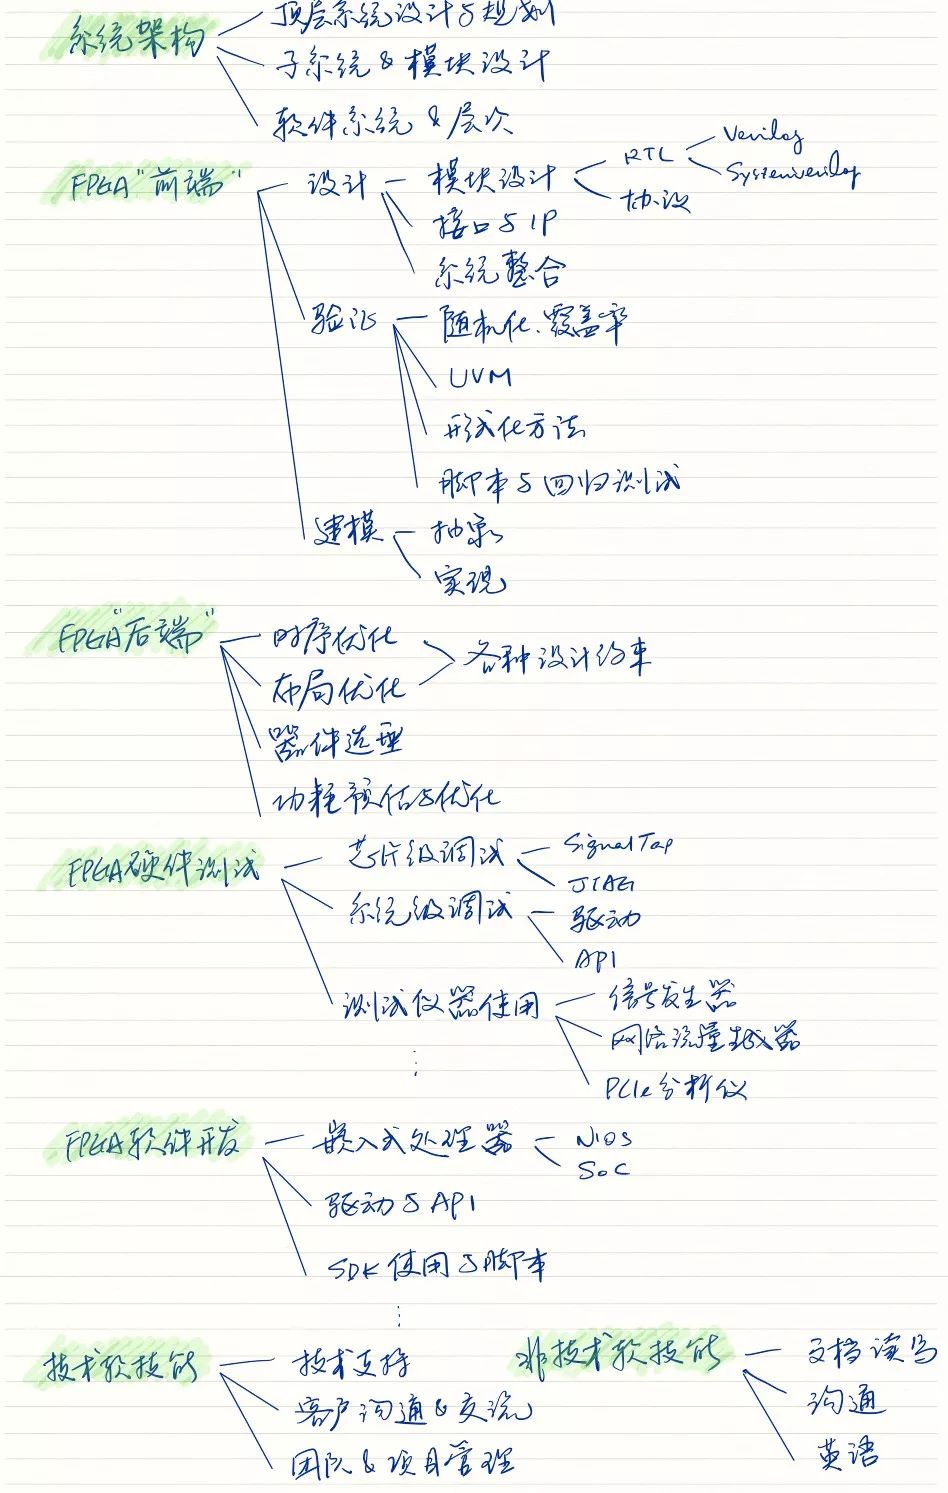 顶层系统设计与规划
系统架构
子系统&模块设计
软件系统&层次
FPGA"前端"
设计
模块设计
RTL
Verilog
Systemverilog
协议
接口与IP
系统整合
验证
随机化、覆盖率
UVM
形式化方法
脚本与回归测试
建模
抽象
实现
FPGA"后端"
时序优化
布局优化
各种设计约束
器件选型
功耗预估与优化
FPGA硬件测试
芯片级调试
SignalTap
JTAG
系统级调试
驱动
API
测试仪器使用
信号发生器
网络流量生成器
PCIe分析仪
⋮
FPGA软件开发
嵌入式处理器
NIOS
SoC
驱动与API
SDK使用与脚本
⋮
技术软技能
技术支持
客户沟通&交流
团队&项目管理
非技术软技能
文档读写
沟通
英语